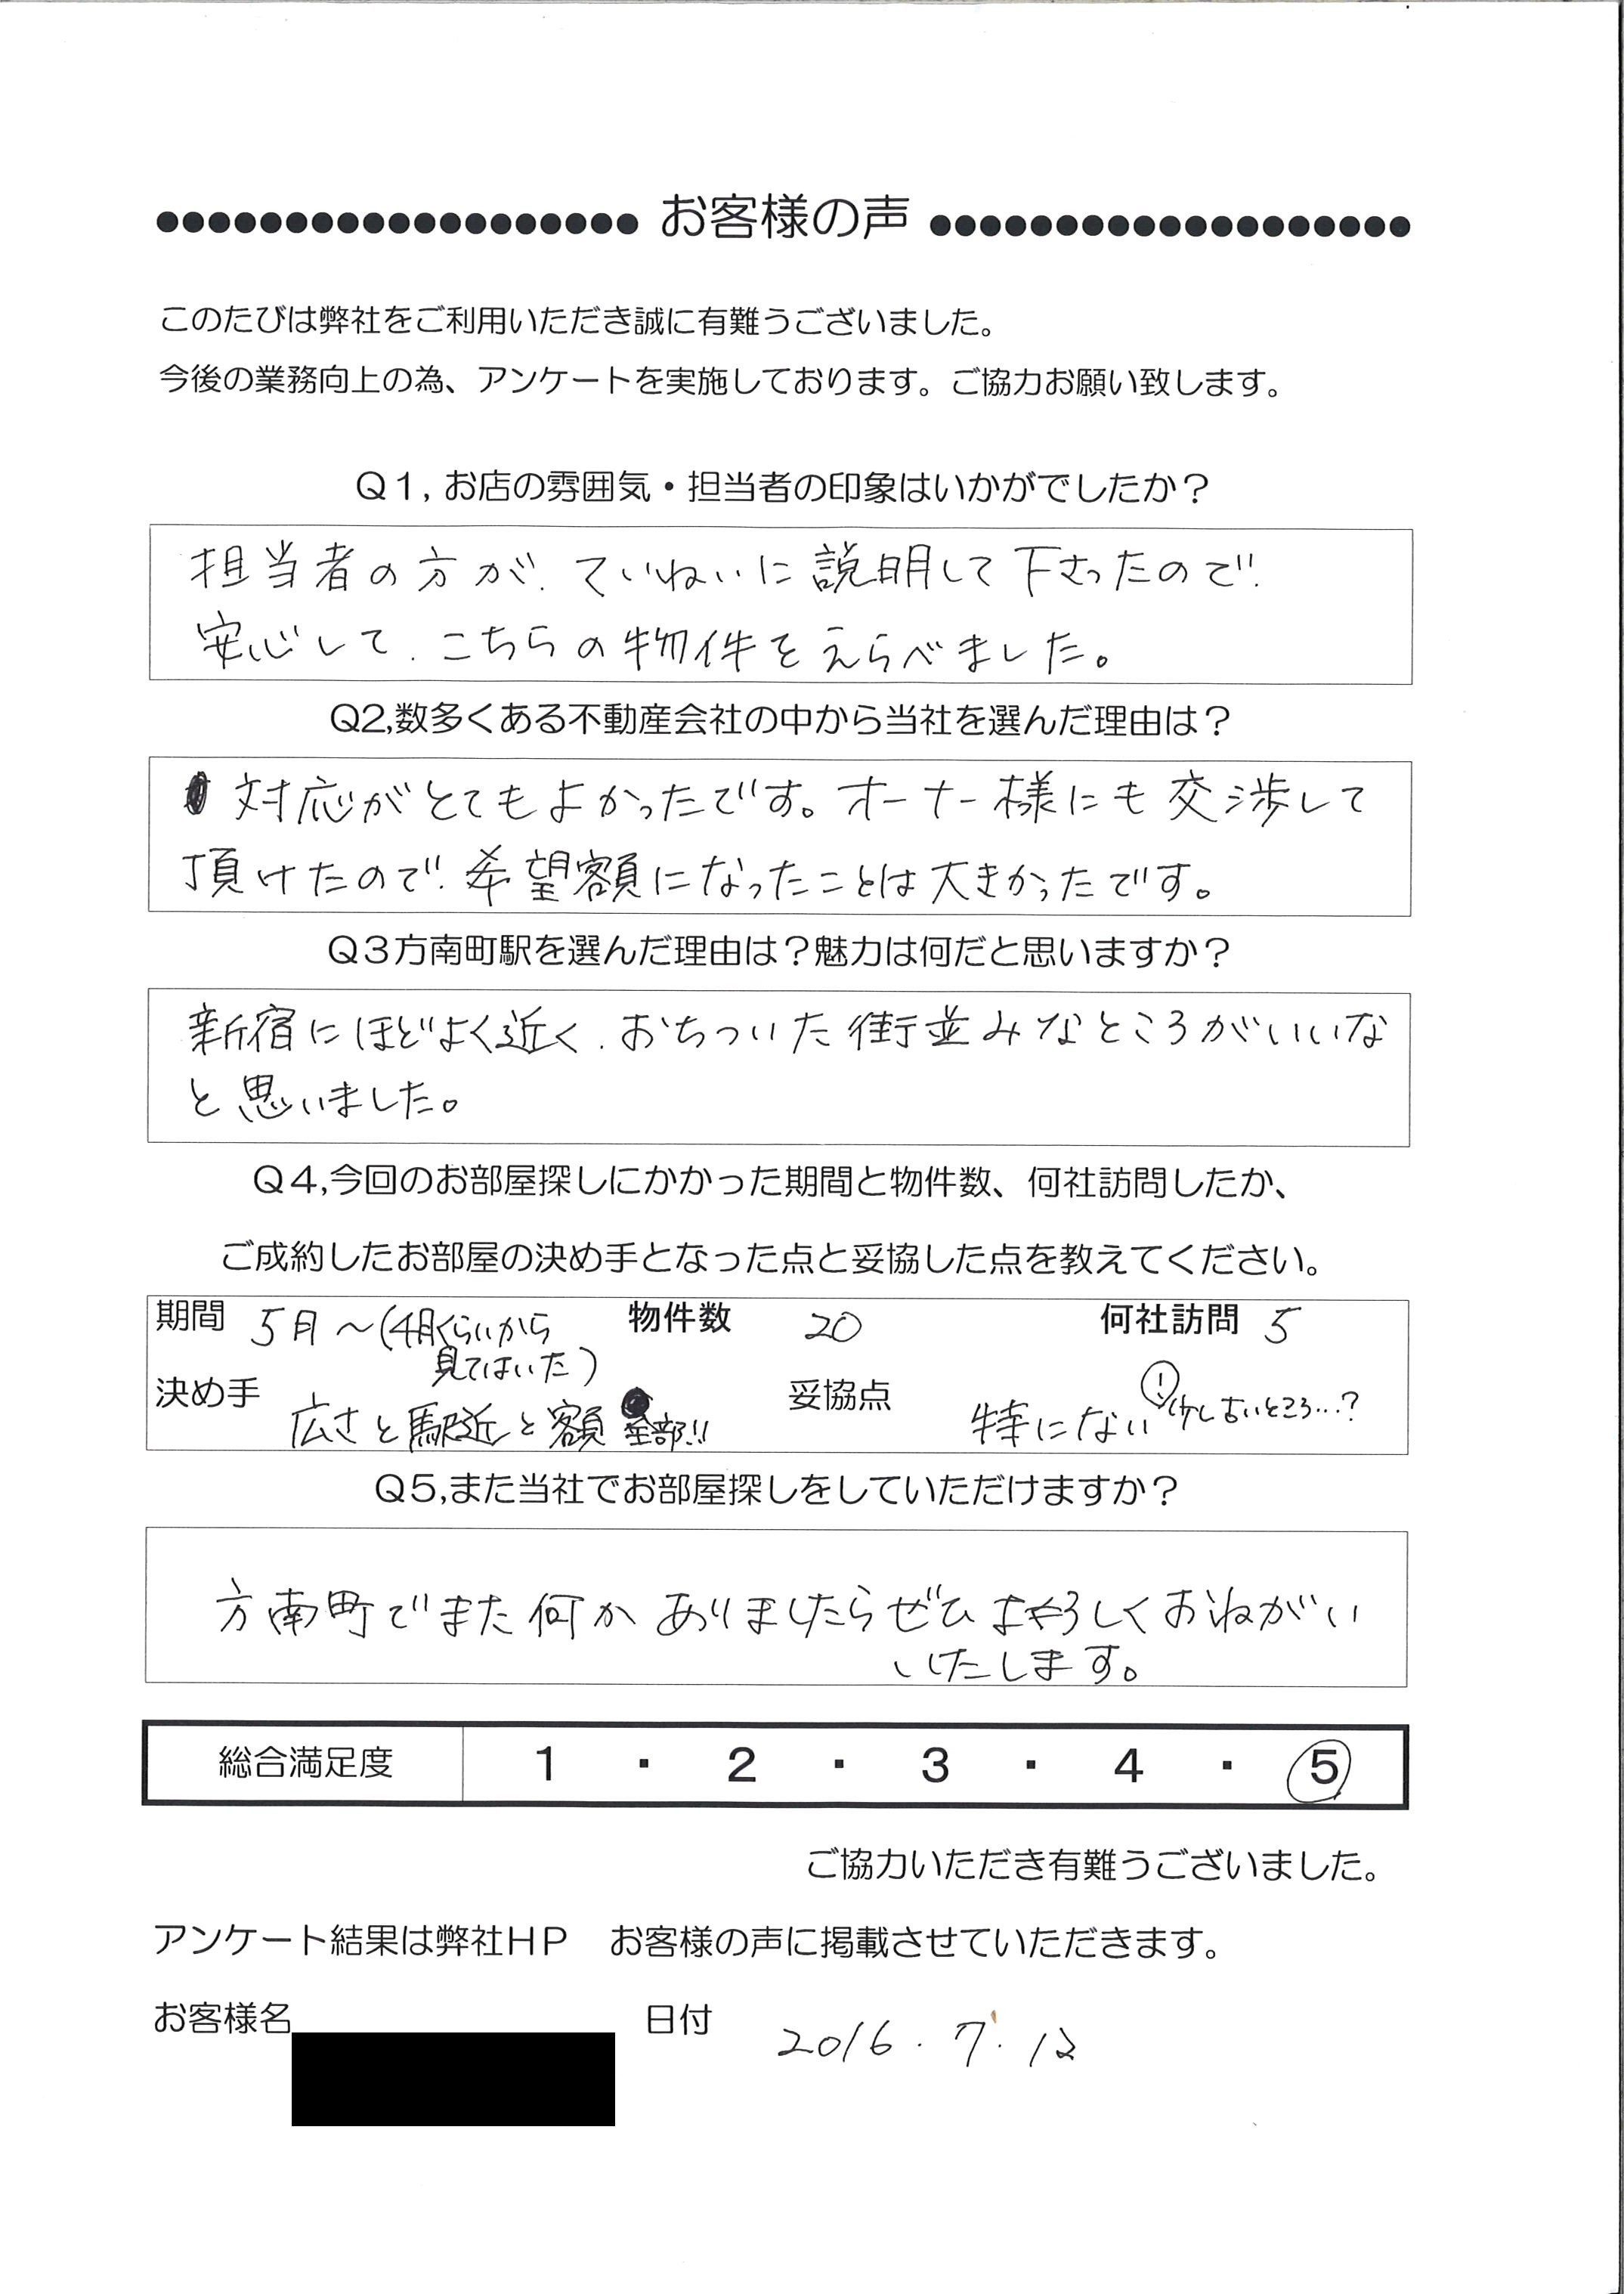 ●●●●●●●●●●●●●●●●●●● お客様の声 ●●●●●●●●●●●●●●●●●●●
このたびは弊社をご利用いただき誠に有難うございました。
今後の業務向上の為、アンケートを実施しております。ご協力お願い致します。
Q1, お店の雰囲気・担当者の印象はいかがでしたか？
担当者の方が、ていねいに説明して下さったので、
安心して、こちらの物件をえらべました。
Q2,数多くある不動産会社の中から当社を選んだ理由は？
対応がとてもよかったです。オーナー様にも交渉して
頂けたので、希望額になったことは大きかったです。
Q3方南町駅を選んだ理由は？魅力は何だと思いますか？
新宿にほどよく近く、おちついた街並みなところがいいな
と思いました。
Q4,今回のお部屋探しにかかった期間と物件数、何社訪問したか、
ご成約したお部屋の決め手となった点と妥協した点を教えてください。
期間 5月～(4月くらいから 物件数 20 何社訪問 5
見てはいた)
決め手 広さと駅近と額 全部!! 妥協点 特にない! 少し古いところ…?
Q5,また当社でお部屋探しをしていただけますか？
方南町でまた何かありましたらぜひよろしくおねがい
いたします。
総合満足度 1 ・ 2 ・ 3 ・ 4 ・ 5
ご協力いただき有難うございました。
アンケート結果は弊社HP お客様の声に掲載させていただきます。
お客様名 日付 2016.7.12